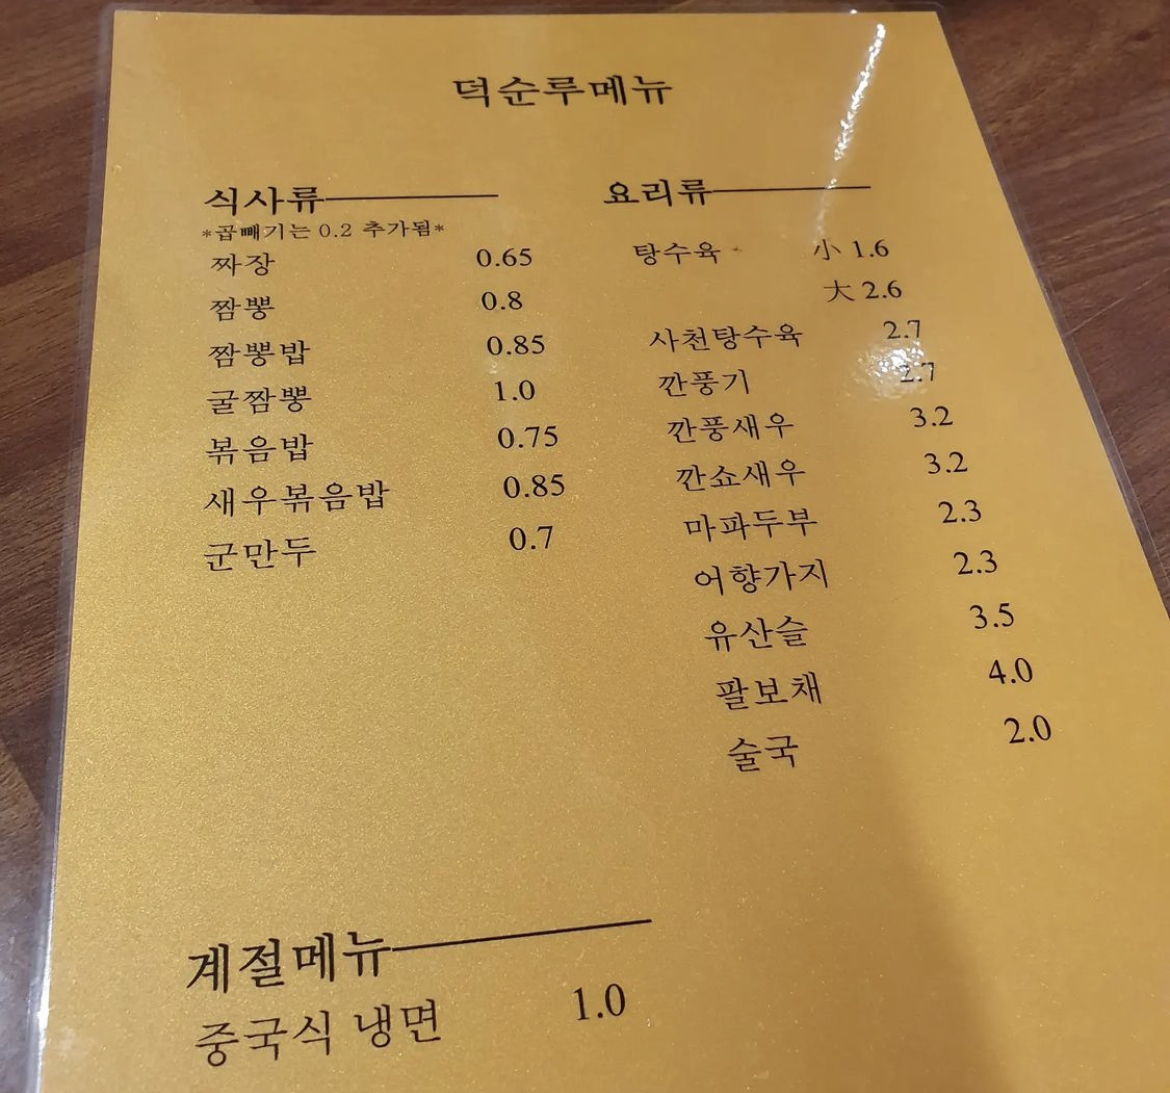 덕순루메뉴
식사류
*곱빼기는 0.2 추가됨*
짜장 0.65
짬뽕 0.8
짬뽕밥 0.85
굴짬뽕 1.0
볶음밥 0.75
새우볶음밥 0.85
군만두 0.7
요리류
탕수육 小 1.6
大 2.6
사천탕수육 2.7
깐풍기 2.7
깐풍새우 3.2
깐쇼새우 3.2
마파두부 2.3
어향가지 2.3
유산슬 3.5
팔보채 4.0
술국 2.0
계절메뉴
중국식 냉면 1.0